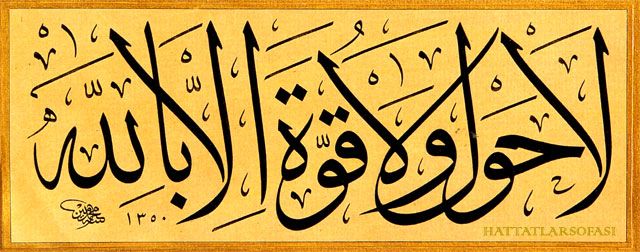 لا حول ولا قوة الا بالله
١٣٥٠
HATTATLARSOFASI